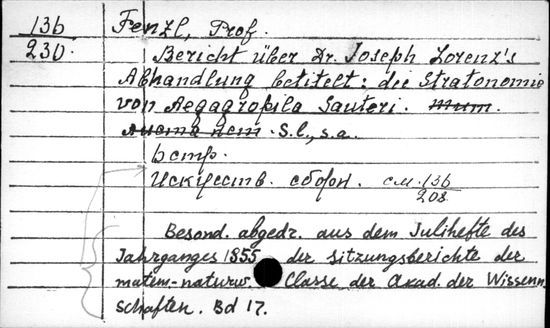 136 Fenzl, Prof.
230. Bericht über Dr. Joseph Lorenz's
Abhandlung betitelt: die Stratonomie
von Aegagropila Sauteri. тит.
листа нет. S.l., s.a.
6 стр.
Искусств. сборн. см. 136
208.
Besond. abgedr. aus dem Julihefte des
Jahrganges 1855 der Sitzungsberichte der
matem.-naturw. Classe der Akad. der Wissenn
schaften. Bd 17.